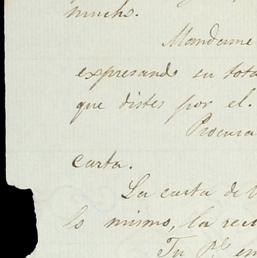 mucho.
Mandame
expresando su tota
que distes por el.
Procura
carta.
La carta de V
lo mismo, la reci
Tu Pe en